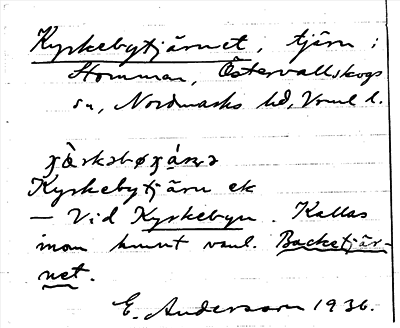 Kyrkebytjärnet, tjärn i
Homman, Östervallskogs
sn, Nordmarks hd, Vrml l.
Kyrkebytjärn ek
— Vid Kyrkebyn. Kallas
inom hmnt vanl. Backetjär-
net.
E. Andersson 1936.